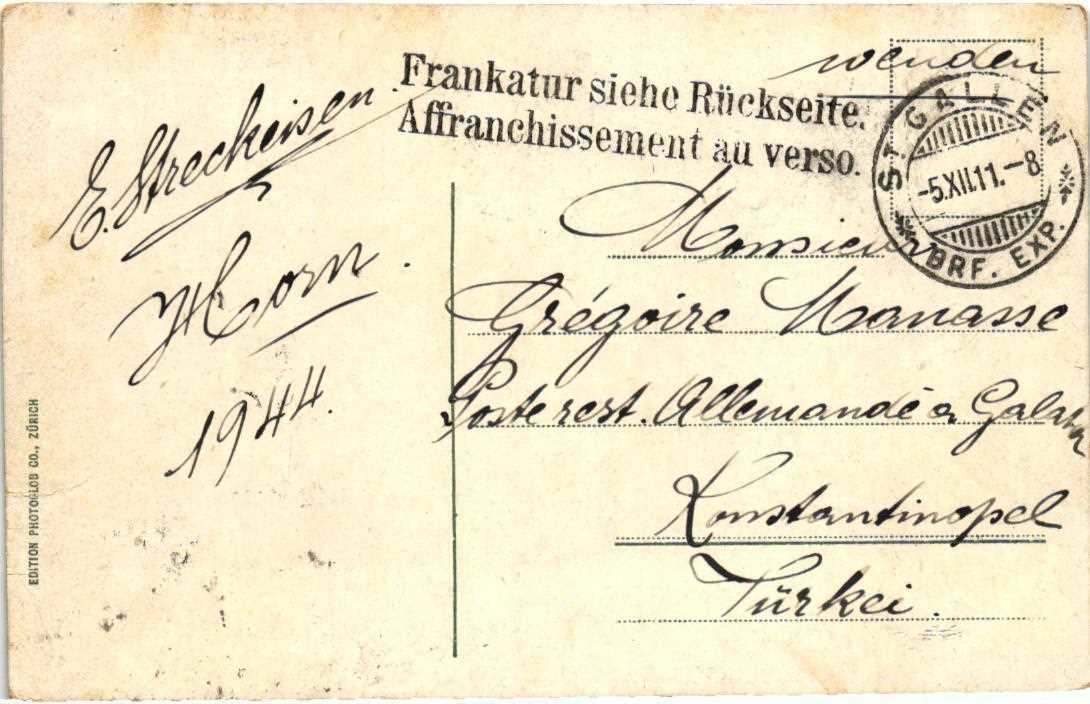 wenden
Frankatur siehe Rückseite.
Affranchissement au verso.
ST. GALLEN
-5.XII.11.-8
BRF. EXP.
E. Streckeisen.
Horn.
1944.
Monsieur
Grégoire Manasse
Poste rest. Allemande à Galata
Konstantinopel
Türkei.
EDITION PHOTOGLOB CO., ZÜRICH